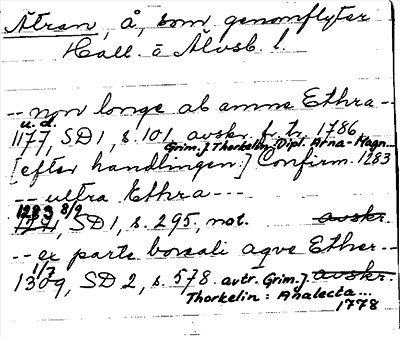 Ätran, å, som genomflyter
Hall. o Älvsb. l.
-- non longe ab amne Ethra --
u. d.
1177, SD1, s. 101, avskr. fr. tr. 1786
Grim. J. Thorkelin: Dipl. Arna-Magn...
[efter handlingen:] Confirm. 1283
-- ultra Ethra ---
1283 8/9
SD1, s. 295, not. avskr.
-- ex parte boreali aqve Ether --
1/7
1309, SD 2, s. 578. avtr. Grim. J. avskr.
Thorkelin: Analecta...
1778